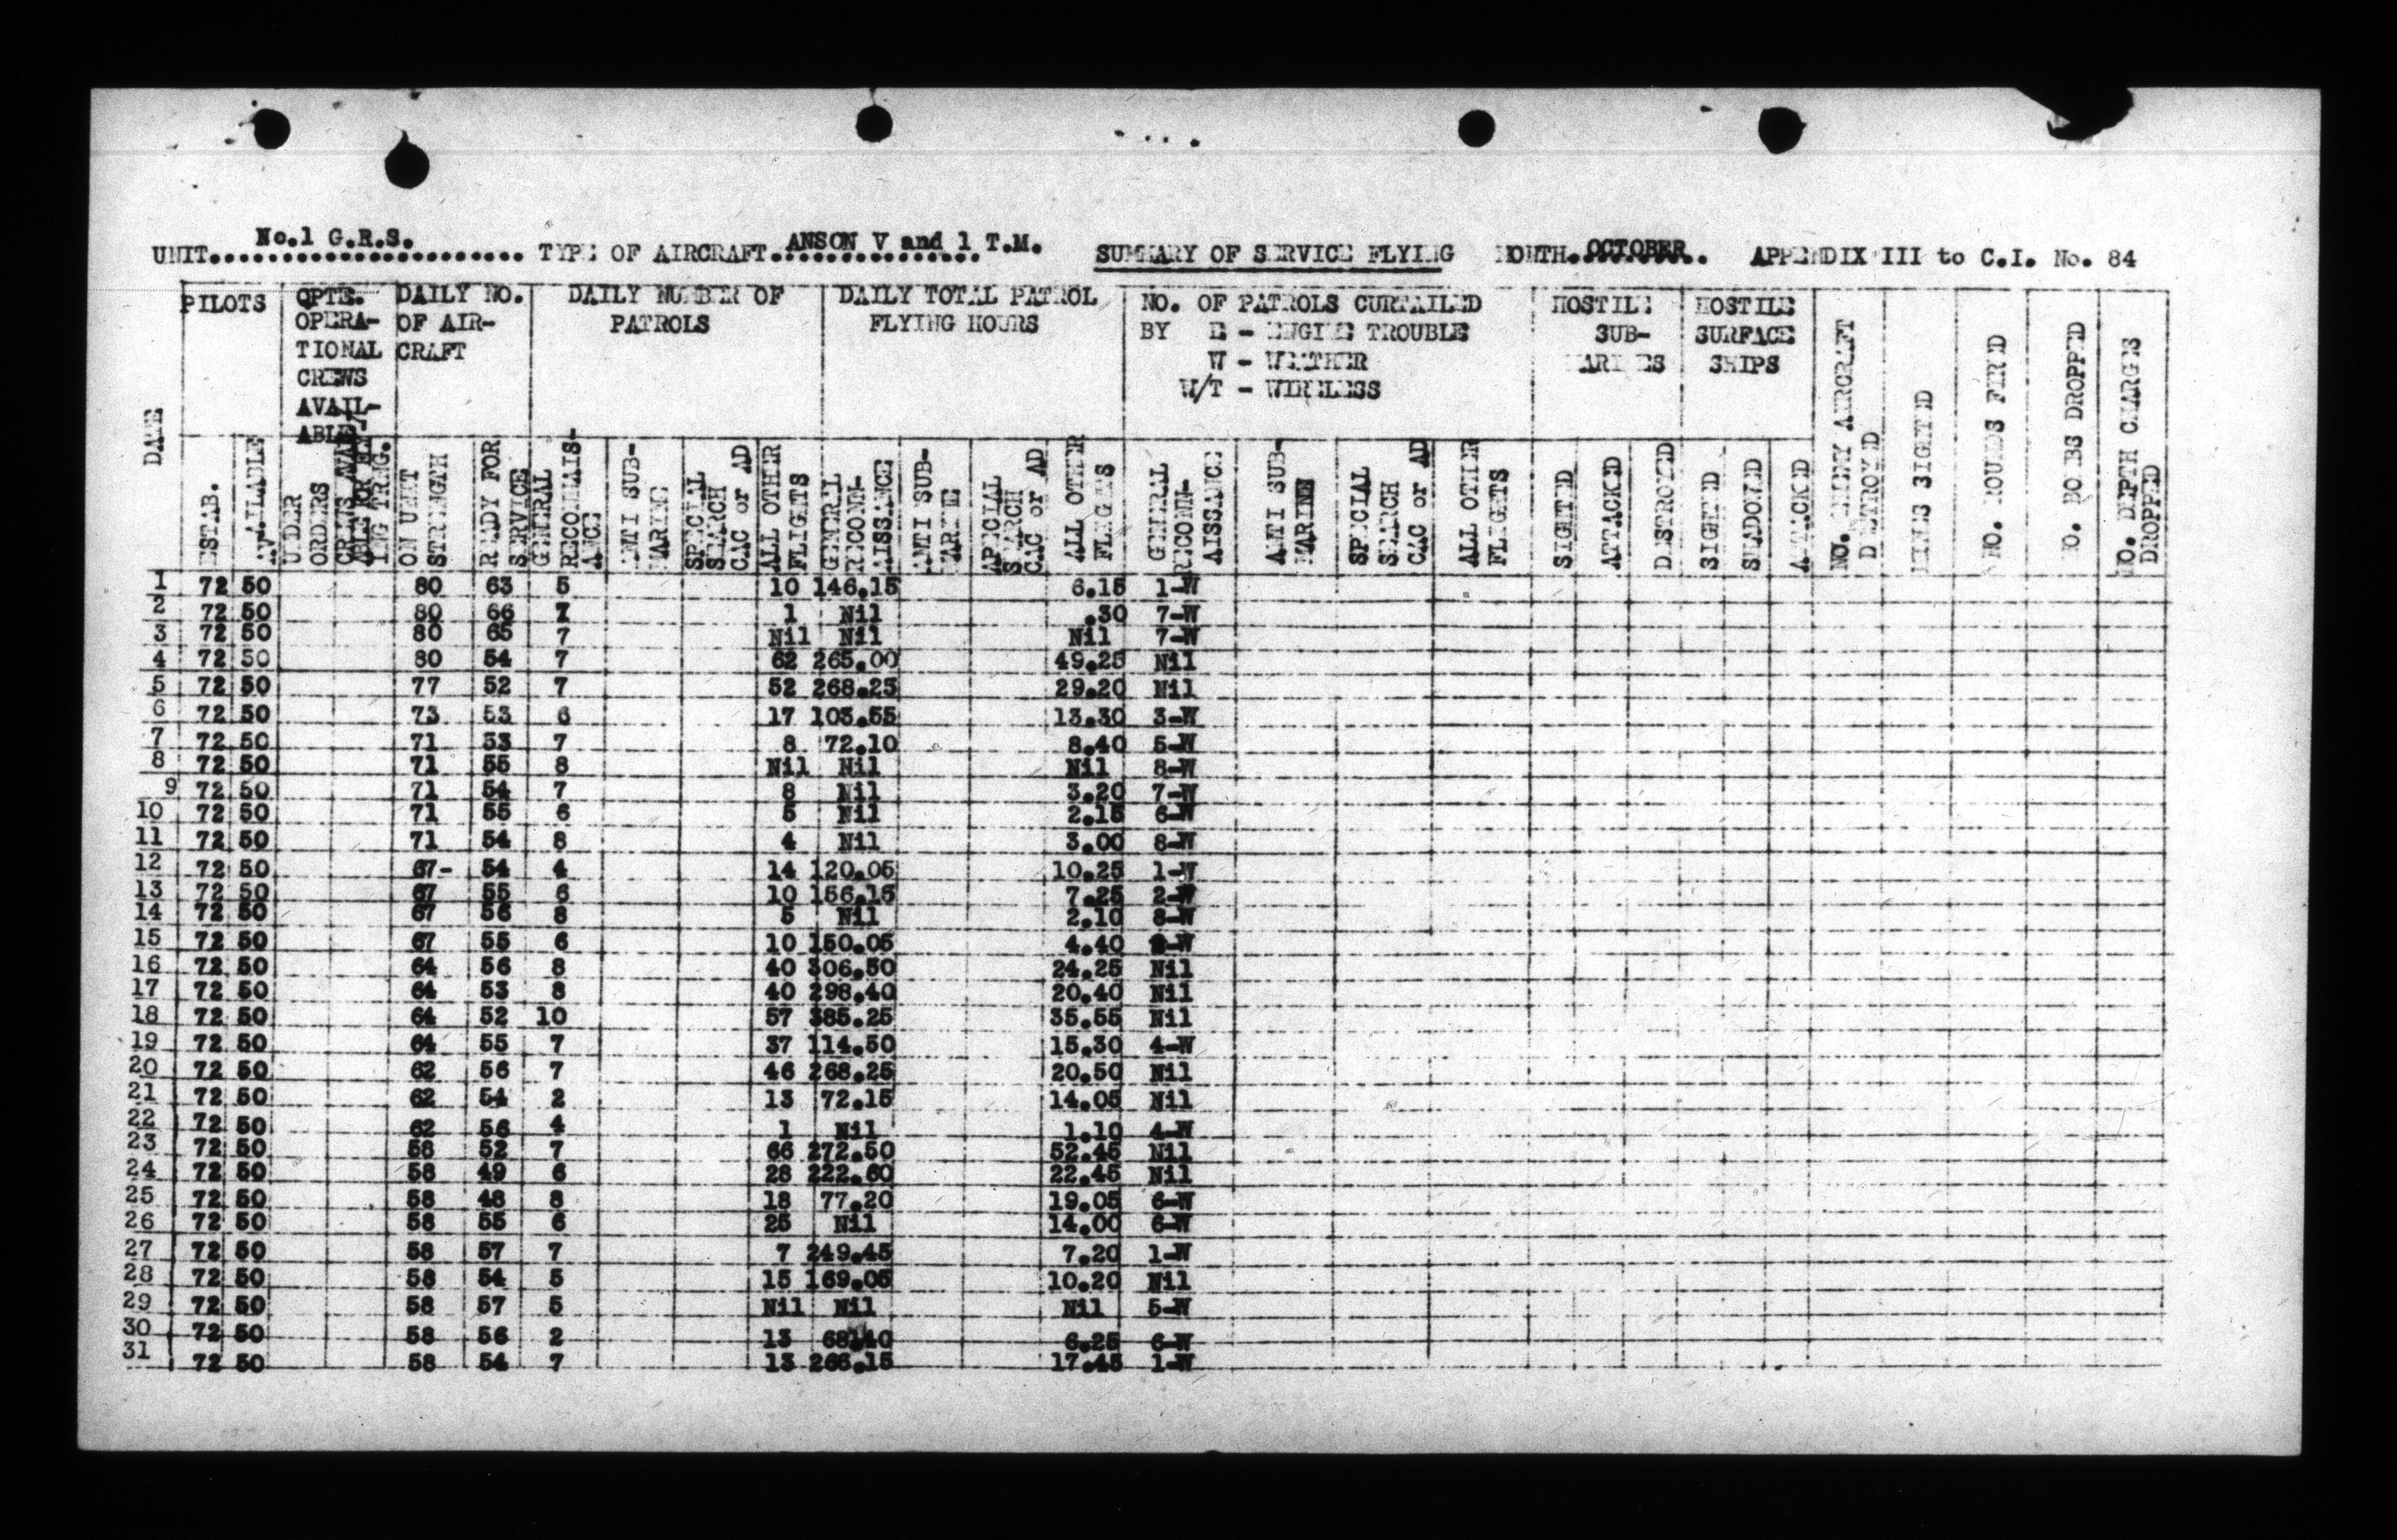 No.1 G.R.S. ANSON V and 1 T.M. OCTOBER
UNIT........................ TYPE OF AIRCRAFT............... SUMMARY OF SERVICE FLYING MONTH.......... APPENDIX III to C.I. No. 84
PILOTS OPTE. OPERATIONAL CREWS AVAILABLE DAILY NO. OF AIRCRAFT DAILY NUMBER OF PATROLS DAILY TOTAL PATROL FLYING HOURS NO. OF PATROLS CURTAILED BY E - ENGINE TROUBLE W - WEATHER W/T - WIRELESS HOSTILE SUB-MARINES HOSTILE SURFACE SHIPS
DATE ESTAB. AVAILABLE UNDER ORDERS CREWS AVAILABLE FOR FLYING TRNG. ON UNIT STRENGTH READY FOR SERVICE GENERAL RECONNAISANCE ANTI SUB-MARINE SPECIAL SEARCH CAC or AD ALL OTHER FLIGHTS GENERAL RECONNAISSANCE ANTI SUB-MARINE SPECIAL SEARCH CAC or AD ALL OTHER FLIGHTS GENERAL RECONNAISSANCE ANTI SUB-MARINE SPECIAL SEARCH CAC or AD ALL OTHER FLIGHTS SIGHTED ATTACKED DESTROYED SIGHTED SHADOWED ATTACKED NO. ENEMY AIRCRAFT DESTROYED MINES SIGHTED NO. ROUNDS FIRED NO. BOMBS DROPPED NO. DEPTH CHARGES DROPPED
1 72 50 80 63 5 10 146.15 6.15 1-W
2 72 50 80 66 7 1 Nil .30 7-W
3 72 50 80 65 7 Nil Nil Nil 7-W
4 72 50 80 54 7 62 265.00 49.25 Nil
5 72 50 77 52 7 52 268.25 29.20 Nil
6 72 50 73 53 6 17 103.55 13.30 3-W
7 72 50 71 53 7 8 72.10 8.40 5-W
8 72 50 71 55 8 Nil Nil Nil 8-W
9 72 50 71 54 7 8 Nil 3.20 7-W
10 72 50 71 55 6 5 Nil 2.15 6-W
11 72 50 71 54 8 4 Nil 3.00 8-W
12 72 50 67- 54 4 14 120.05 10.25 1-W
13 72 50 67 55 6 10 156.15 7.25 2-W
14 72 50 67 56 8 5 Nil 2.10 8-W
15 72 50 67 55 6 10 150.05 4.40
16 72 50 64 56 8 40 306.50 24.25 Nil
17 72 50 64 53 8 40 298.40 20.40 Nil
18 72 50 64 52 10 57 385.25 35.55 Nil
19 72 50 64 55 7 37 114.50 15.30 4-W
20 72 50 62 56 7 46 268.25 20.50 Nil
21 72 50 62 54 2 13 72.15 14.05 Nil
22 72 50 62 56 4 1 Nil 1.10 4-W
23 72 50 58 52 7 66 272.50 52.45 Nil
24 72 50 58 49 6 28 222.60 22.45 Nil
25 72 50 58 48 8 18 77.20 19.05 6-W
26 72 50 58 55 6 25 Nil 14.00 6-W
27 72 50 58 57 7 7 249.45 7.20 1-W
28 72 50 58 54 5 15 169.05 10.20 Nil
29 72 50 58 57 5 Nil Nil Nil 5-W
30 72 50 58 56 2 13 68.40 6.25 6-W
31 72 50 58 54 7 13 266.15 17.45 1-W